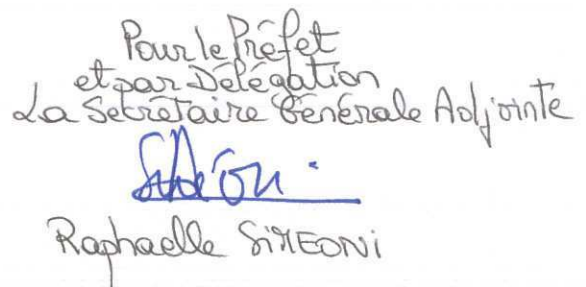 Pour le Préfet
et par Délégation
La Secrétaire Générale Adjointe
Siméoni
Raphaelle SIMEONI